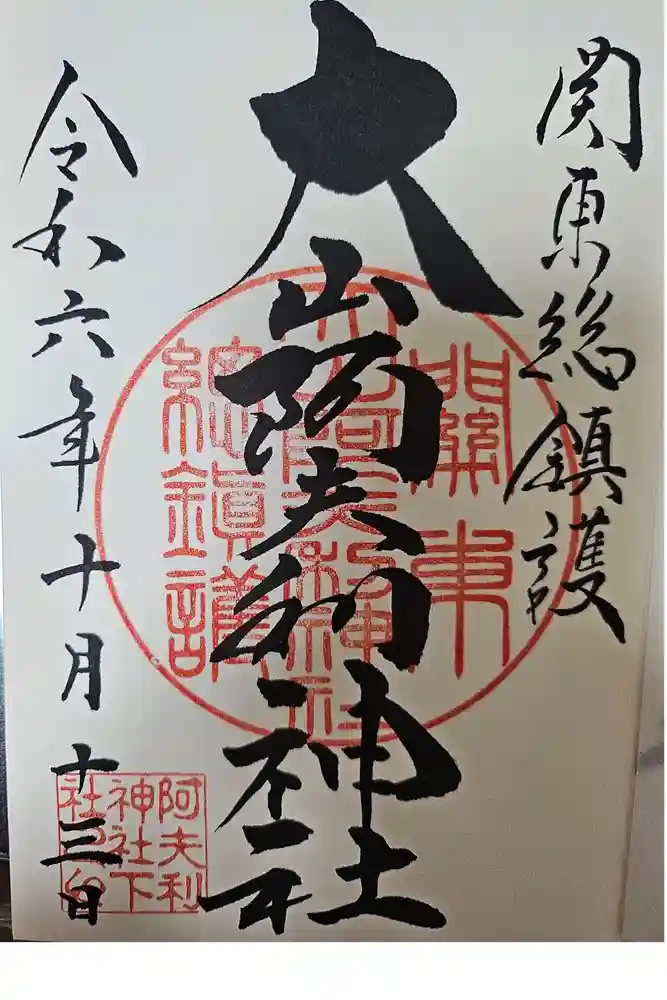 関東総鎮護
大山阿夫利神社
令和六年十月十三日
關東
大山阿夫利神社
總鎮護
阿夫利
神社下
社